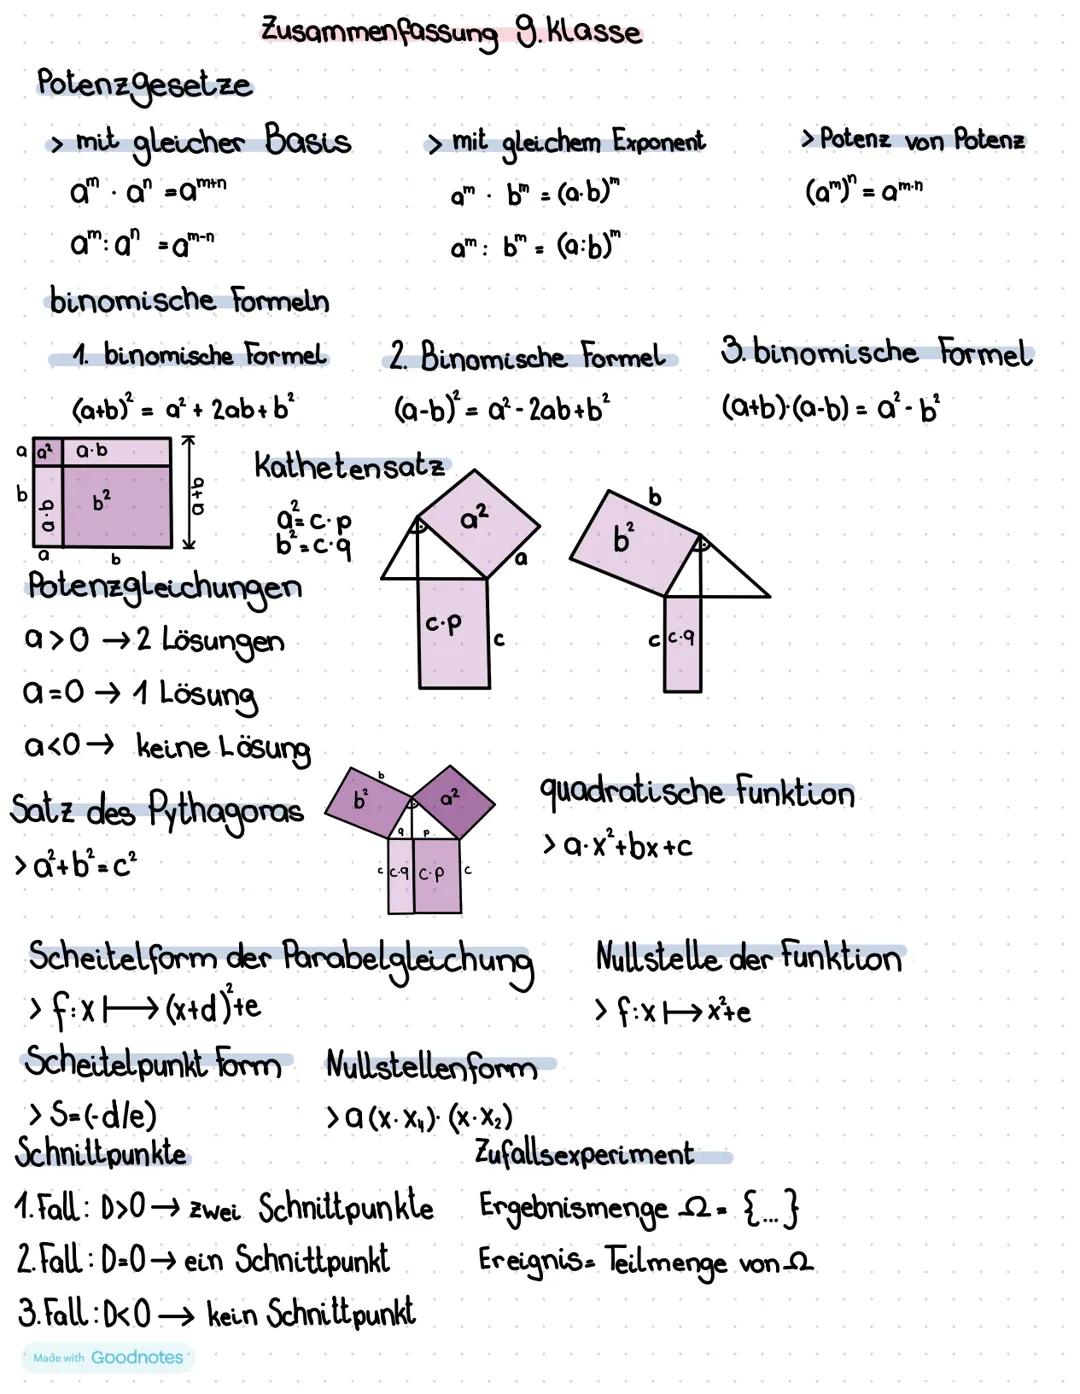 Zusammenfassung 9. Klasse
Potenzgesetze
> mit gleicher Basis
a^m · a^n = a^m+n
a^m : a^n = a^m-n
> mit gleichem Exponent
a^m · b^m = (a·b)^m
a^m : b^m = (a:b)^m
> Potenz von Potenz
(a^m)^n = a^m·n
binomische Formeln
1. binomische Formel
(a+b)² = a² + 2ab + b²
2. Binomische Formel
(a-b)² = a² - 2ab + b²
3. binomische Formel
(a+b)·(a-b) = a² - b²
a
a²
a·b
b
a·b
b²
a+b
a
b
Kathetensatz
a² = c·p
b² = c·q
a²
a
c·p
c
b
b²
c
c·q
Potenzgleichungen
a>0 → 2 Lösungen
a=0 → 1 Lösung
a<0 → keine Lösung
Satz des Pythagoras
> a²+b²=c²
b
b²
a²
q
p
c
c·q
c·p
c
quadratische Funktion
> a·x²+bx+c
Scheitelform der Parabelgleichung
> f:x ↦ (x+d)²+e
Nullstelle der Funktion
> f:x ↦ x²+e
Scheitelpunkt Form
> S=(-d/e)
Nullstellenform
> a(x·x₁)·(x·x₂)
Schnittpunkte
1. Fall: D>0 → zwei Schnittpunkte
2. Fall: D=0 → ein Schnittpunkt
3. Fall: D<0 → kein Schnittpunkt
Zufallsexperiment
Ergebnismenge Ω = {...}
Ereignis = Teilmenge von Ω
Made with Goodnotes